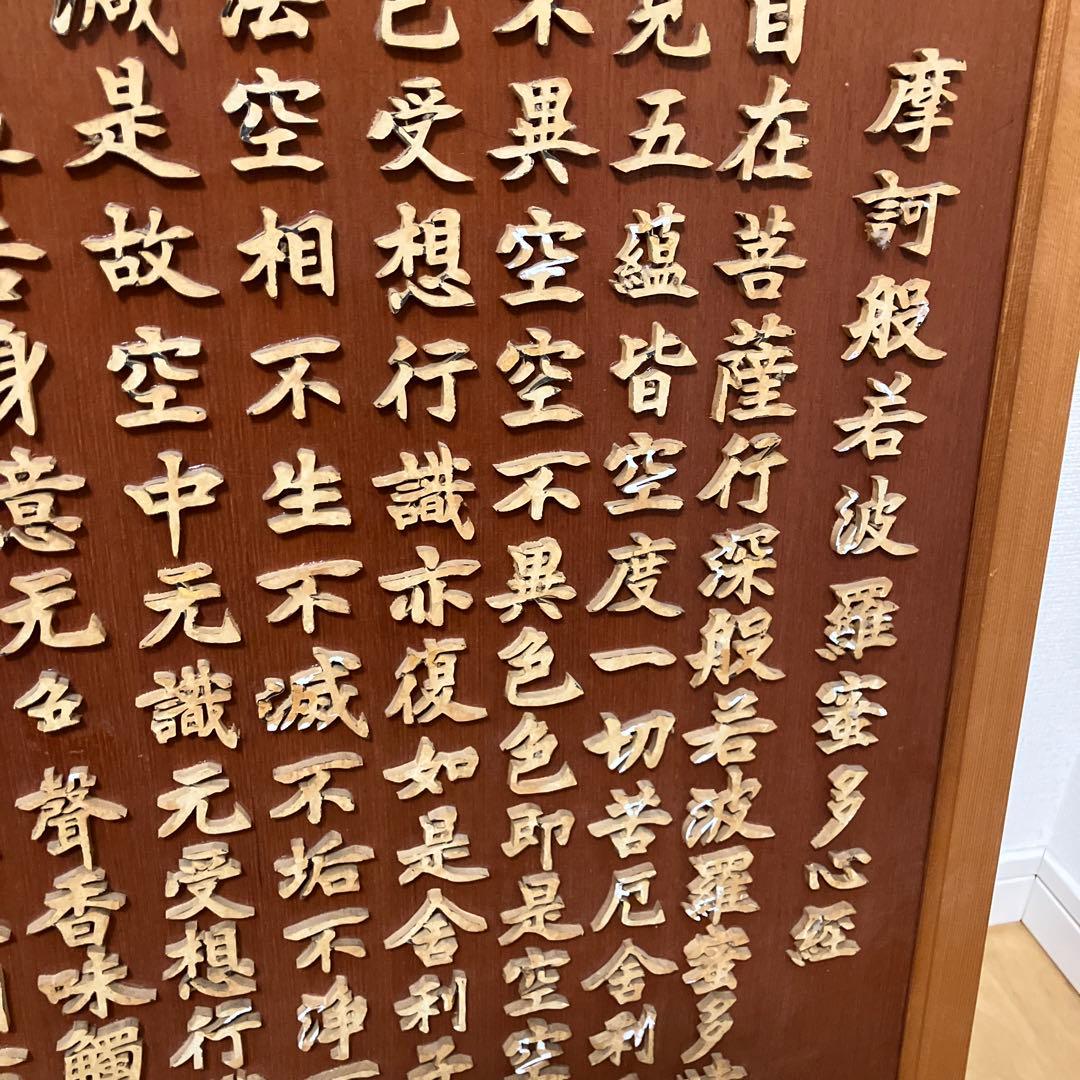 摩訶般若波羅蜜多心經
在菩薩行深般若波羅蜜多
五蘊皆空度一切苦厄舍利
異空空不異色色即是空空
受想行識亦復如是舍利子
空相不生不滅不垢不淨
是故空中元識元受想行
身意无色聲香味觸